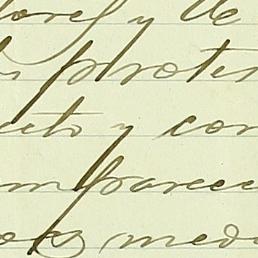 ores y de
s protes
cto y con
mparec
os med